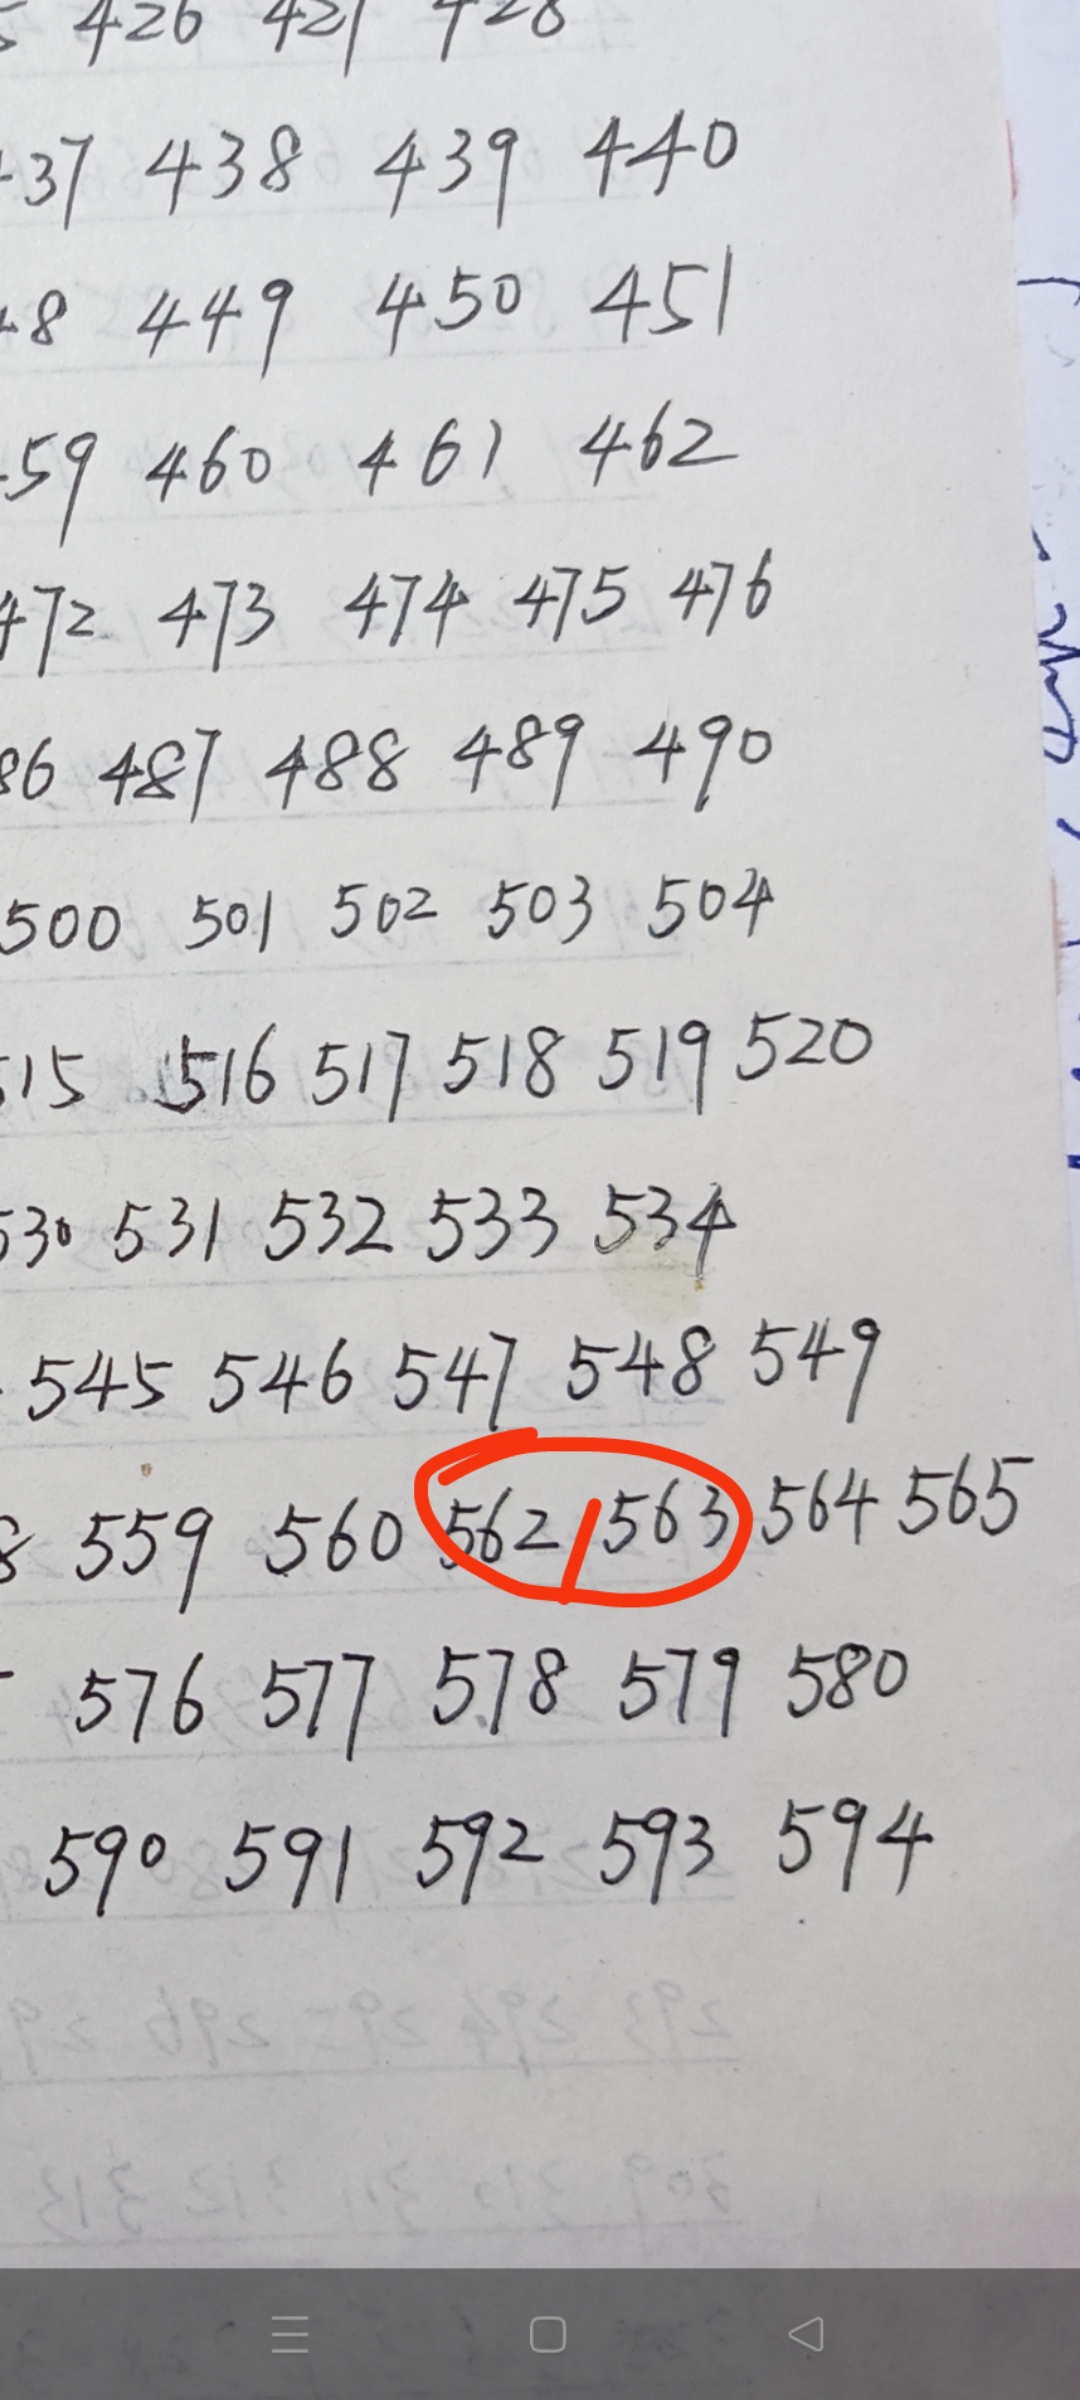 426 427 428
437 438 439 440
48 449 450 451
459 460 461 462
472 473 474 475 476
86 487 488 489 490
500 501 502 503 504
515 516 517 518 519 520
530 531 532 533 534
545 546 547 548 549
8 559 560 562 563 564 565
576 577 578 579 580
590 591 592 593 594